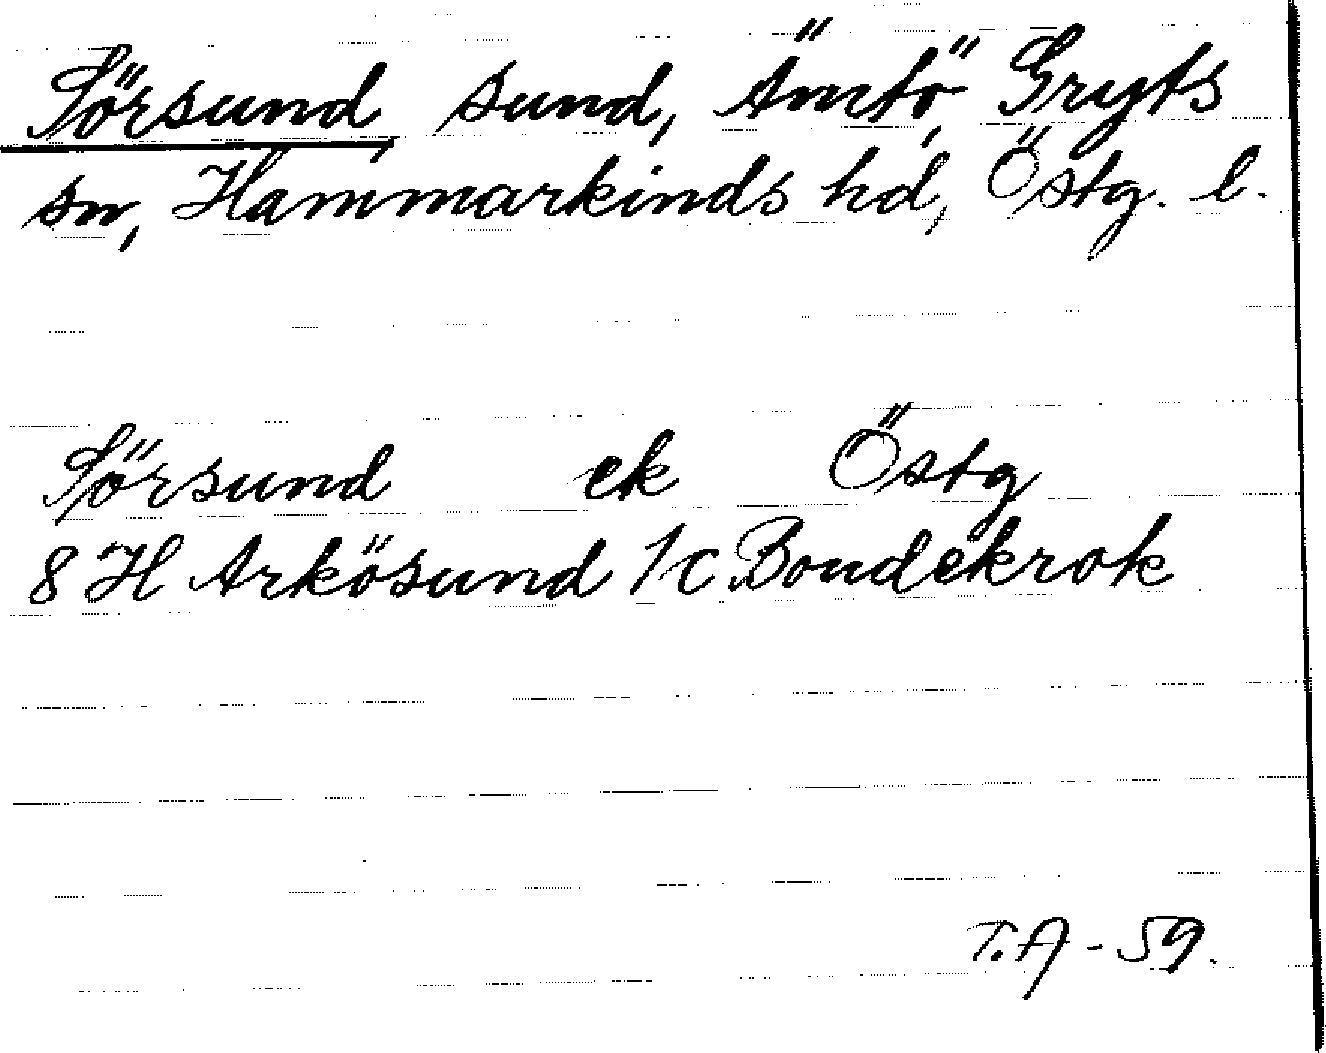 Sörsund, sund, Ämtö, Gryts
sn, Hammarkinds hd, Östg. l.
Sörsund ek Östg
8 H Arkösund 1c Bondekrok
T.A - 59.